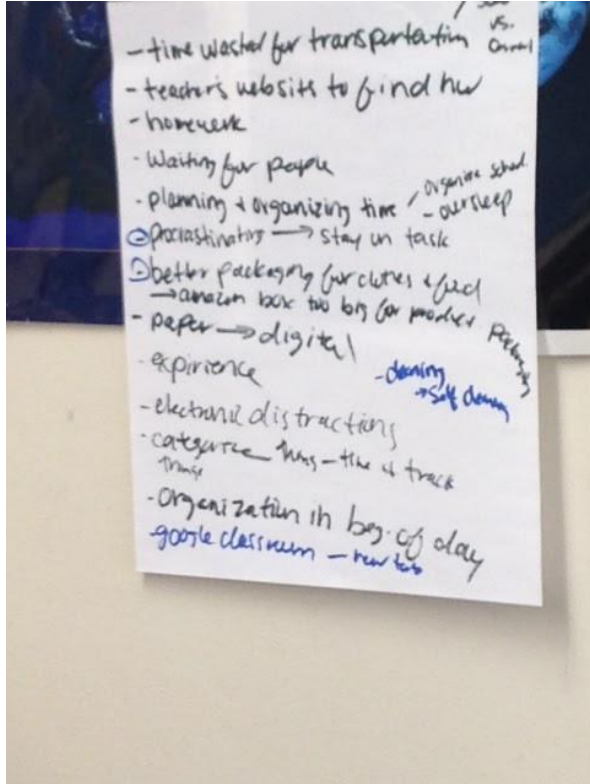 vs.
- time wasted for transportation
- teacher's website to find hw
- homework
- Waiting for people
- planning + organizing time / organize school
- oversleep
- procrastinating → stay on task
- better packaging for clothes & food
→ amazon box too big for product packaging
- paper → digital
- cleaning
→ self cleaning
- expirience
- electronic distractions
- categorize things - time & track
things
- organization in beg. of day
- google classroom - new tab